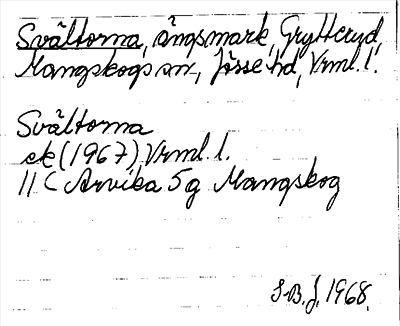 Svältorna, ängsmark, Grytteryd,
Mangskogs sn, Jösse hd, Vrml. l.
Svältorna
ek (1967) Vrml. l.
11 C Arvika 5g Mangskog
S-B. J. 1968.